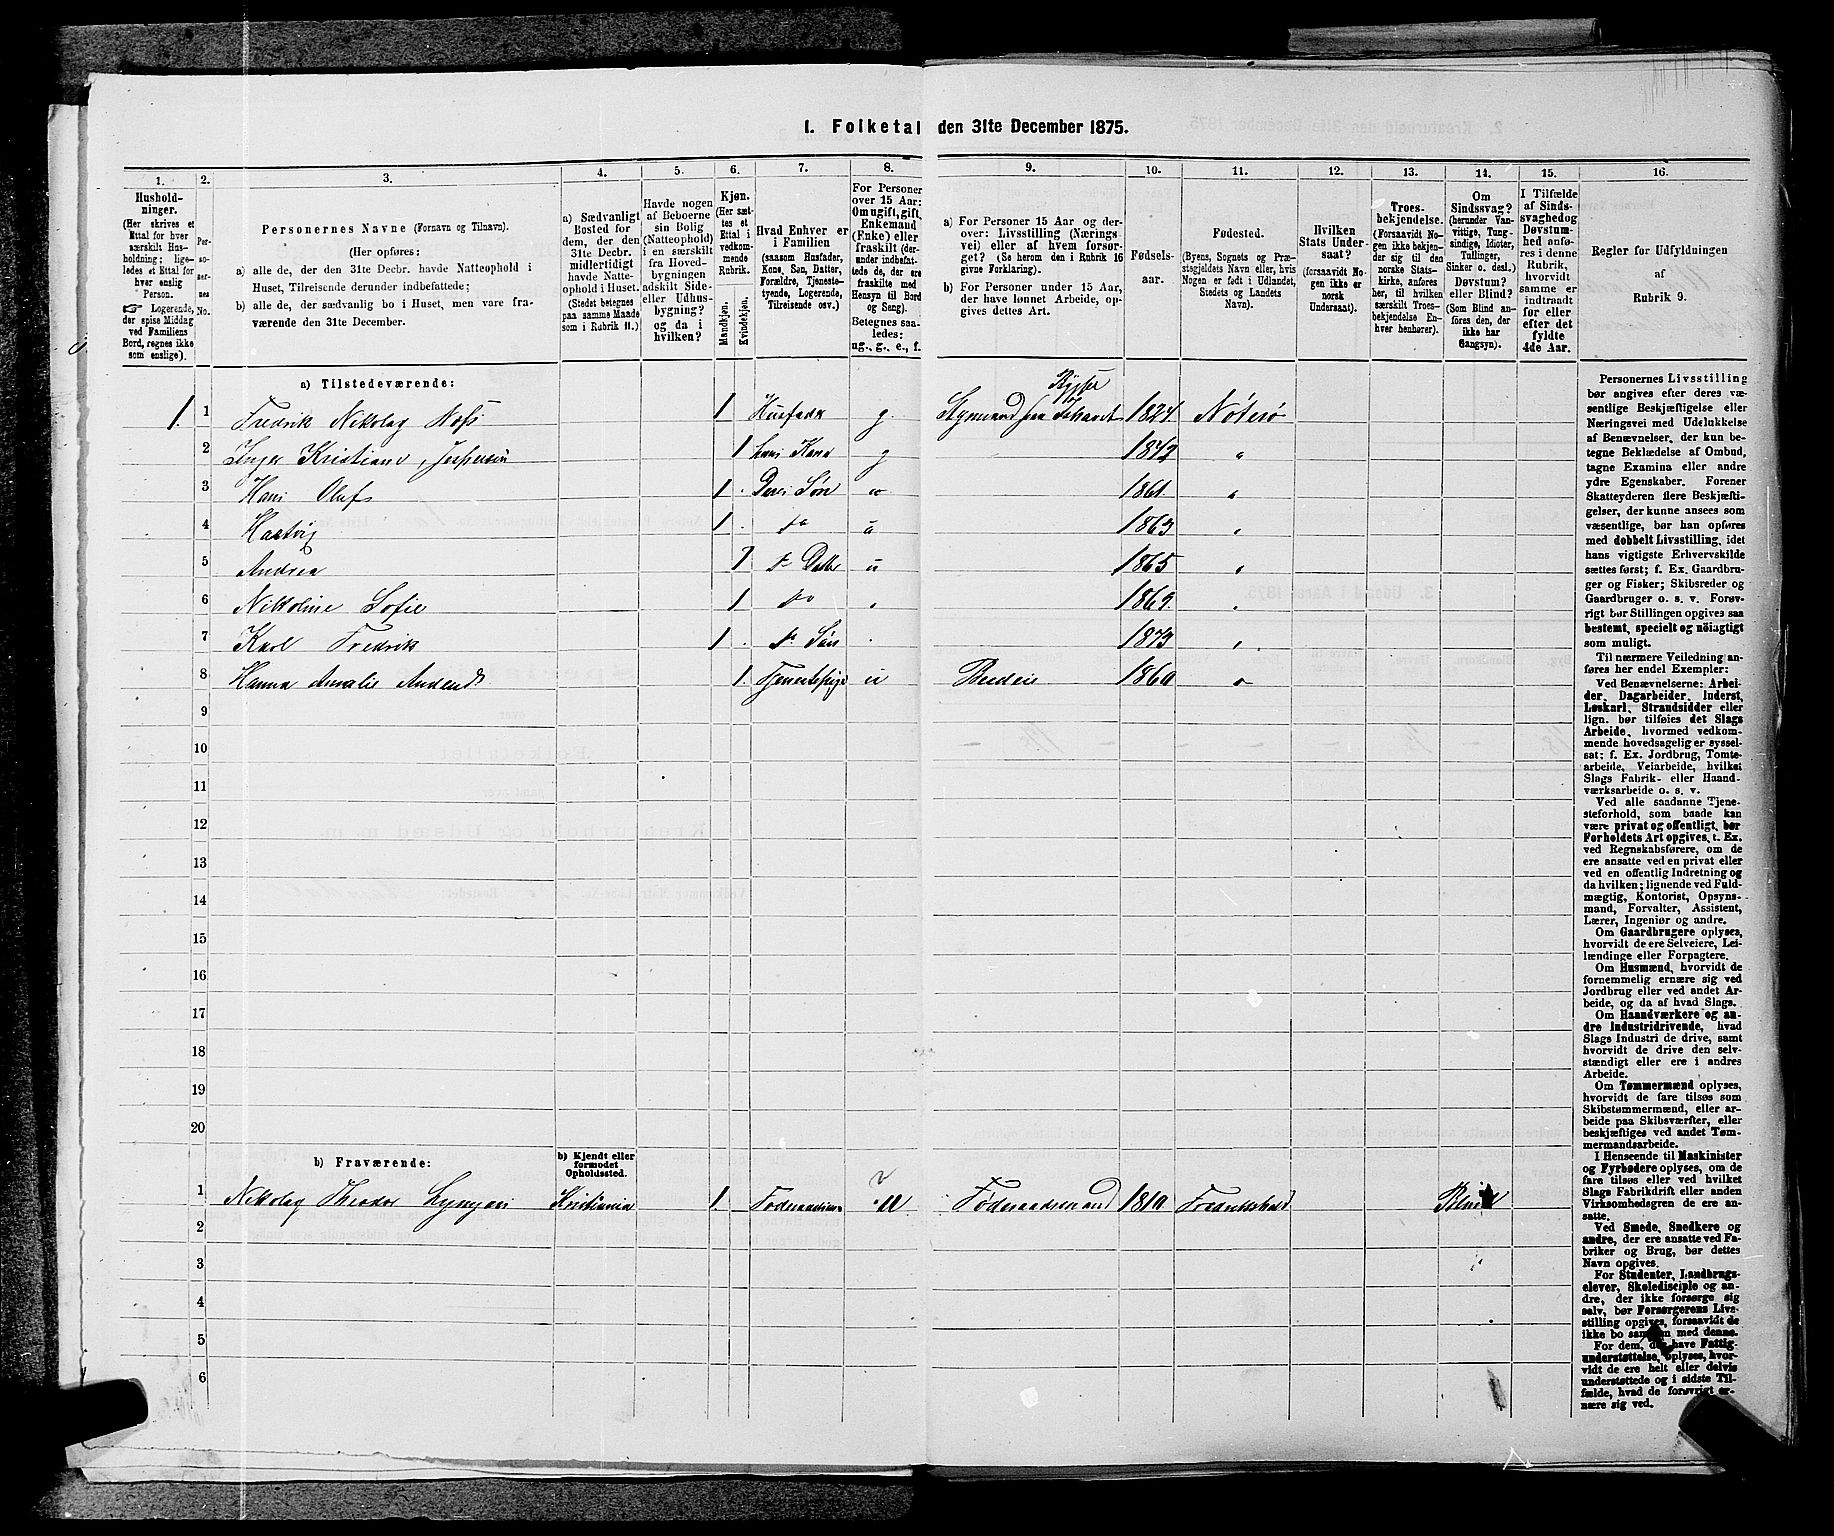 1. Folketal den 31te December 1875.
1. 2. 3. 4. 5. 6. 7. 8. 9. 10. 11. 12. 13. 14. 15. 16.
Hushold-
ninger.
(Her skrives et
Ettal for hver
særskilt Hus-
holdning; lige-
ledes et Ettal for
hver enslig
Person.
☞ Logerende,
der spise Middag
ved Familiens
Bord, regnes ikke
som enslige).
Per-
so-
ner-
nes
No.
Personernes Navne (Fornavn og Tilnavn).
(Her opføres:
a) alle de, der den 31te Decbr. havde Natteophold i
Huset, Tilreisende derunder indbefattede;
b) alle de, der sædvanlig bo i Huset, men vare fra-
værende den 31te December.
a) Sædvanligt
Bosted for
dem, der den
31te Decbr.
midlertidigt
havde Natte-
ophold i Huset.
(Stedet betegnes
paa samme Maade
som i Rubrik 11.)
Havde nogen
af Beboerne
sin Bolig
(Natteophold)
i en særskilt
fra Hoved-
bygningen
adskilt Side-
eller Udhus-
bygning?
og da i
hvilken?
Kjøn.
(Her sæt-
tes et
Ettal i
vedkom-
mende
Rubrik.
Mandkjøn.
Kvindekjøn.
Hvad Enhver er
i Familien
(saasom Husfader,
Kone, Søn, Datter,
Forældre, Tjeneste-
tyende, Logerende,
Tilreisende osv.)
For Personer
over 15 Aar:
Om ugift, gift,
Enkemand
(Enke) eller
fraskilt (der-
under indbefat-
tede de, der ere
fraskilte med
Hensyn til Bord
og Seng).
Betegnes saa-
ledes:
ug., g., e., f.
a) For Personer 15 Aar og der-
over: Livsstilling (Nærings-
vei) eller af hvem forsør-
get? (Se herom den i Rubrik 16
givne Forklaring).
b) For Personer under 15 Aar,
der have lønnet Arbeide, op-
gives dettes Art.
Fødsels-
aar.
Fødested.
(Byens, Sognets og Præ-
stegjeldets Navn eller, hvis
Nogen er født i Udlandet,
Stedets og Landets
Navn).
Hvilken
Stats Under-
saat?
(forsaavidt No-
gen ikke er
norsk
Undersaat).
Troes-
bekjendelse.
(Forsaavidt No-
gen ikke bekjen-
der sig til den
norske Stats-
kirke, anføres
her, til hvilken
særskilt Troes-
bekjendelse En-
hver henhører).
Om
Sindssvag?
(herunder Van-
vittige, Tung-
sindige, Idioter,
Tullinger,
Sinker o. desl.)
Døvstum?
eller Blind?
(Som Blind an-
føres den, der
ikke har
Gangsyn).
I Tilfælde
af Sinds-
svaghed og
Døvstum-
hed anfø-
res i denne
Rubrik,
hvorvidt
samme er
indtraadt
før eller
efter det
fyldte
4de Aar.
Regler for Udfyldningen
af
Rubrik 9.
a) Tilstedeværende:
1. 1 Fredrik Nikolay 1 Husfader g. 1824. Nøterø
2 Inger Kristiane 1 hans Kone g 1842 "
3 Hans Olaf 1 Deres Søn 1861. "
4 1 do u 1863 "
5 Andrea 1 u 1865 "
6 Nikoline Sofie 1 do
7 Karl Fredrik 1 1873
8 Hanna Amalie 1 Tjenestepige u 1860 "
9
10
11
12
13
14
15
16
17
18
19
20
b) Fraværende:
b) Kjendt eller
formodet
Opholdssted.
1 Nikolay Theodor Kristiania 1 Føderaadsmand 1810 Blind
2
3
4
5
6
Personernes Livsstilling
bør angives efter deres væ-
sentlige Beskjæftigelse eller
Næringsvei med Udelukkelse
af Benævnelser, der kun be-
tegne Beklædelse af Ombud,
tagne Examina eller andre
ydre Egenskaber. Forener
Skatteyderen flere Beskjæfti-
gelser, der kunne ansees som
væsentlige, bør han opføres
med dobbelt Livsstilling, idet
hans vigtigste Erhvervskilde
sættes først; f. Ex. Gaardbru-
ger og Fisker; Skibsreder og
Gaardbruger o. s. v. Forøv-
rigt bør Stillingen opgives saa
bestemt, specielt og nøiagtigt
som muligt.
Til nærmere Veiledning an-
føres her endel Exempler:
Ved Benævnelserne: Arbei-
der, Dagarbeider, Inderst,
Løskarl, Strandsidder eller
lign. bør tilføies det Slags
Arbeide, hvormed vedkom-
mende hovedsagelig er syssel-
sat; f. Ex. Jordbrug, Tomte-
arbeide, Veiarbeide, hvilket
Slags Fabrik- eller Haand-
værksarbeide o. s. v.
Ved alle saadanne Tjene-
steforhold, som baade kan
være privat og offentligt, bør
Forholdets Art opgives, t. Ex.
ved Regnskabsførere, om de
ere ansatte ved en privat eller
ved en offentlig Indretning og
da hvilken; lignende ved Fuld-
mægtig, Kontorist, Opsyns-
mand, Forvalter, Assistent,
Lærer, Ingeniør og andre.
Om Gaardbrugere oplyses,
hvorvidt de ere Selveiere, Lei-
lændinge eller Forpagtere.
Om Husmænd, hvorvidt de
fornemmelig ernære sig ved
Jordbrug eller ved andet Ar-
beide, og da af hvad Slags.
Om Haandværkere og an-
dre Industridrivende, hvad
Slags Industri de drive, samt
hvorvidt de drive den selv-
stændigt eller ere i andres
Arbeide.
Om Tømmermænd oplyses,
hvorvidt de fare tilsøs som
Skibstømmermænd, eller ar-
beide paa Skibsværfter, eller
beskjæftiges ved andet Tøm-
mermandsarbeide.
I Henseende til Maskinister
og Fyrbødere oplyses, om de
fare tilsøs eller ved hvilket
Slags Fabrikdrift eller anden
Virksomhed de ere an-
satte.
Ved Smede, Snedkere og
andre, der ere ansatte ved Fa-
briker og Brug, bør dettes
Navn opgives.
For Studenter, Landbrugs-
elever, Skoledisciple og an-
dre, der ikke forsørge sig
selv, bør Forsørgerens Livs-
stilling opgives, forsaavidt de
ikke bo sammen med denne.
For dem, der have Fattig-
understøttelse, oplyses, hvor-
vidt de ere helt eller delvis
understøttede og i sidste Til-
fælde, hvad de forøvrigt er-
nære sig ved.